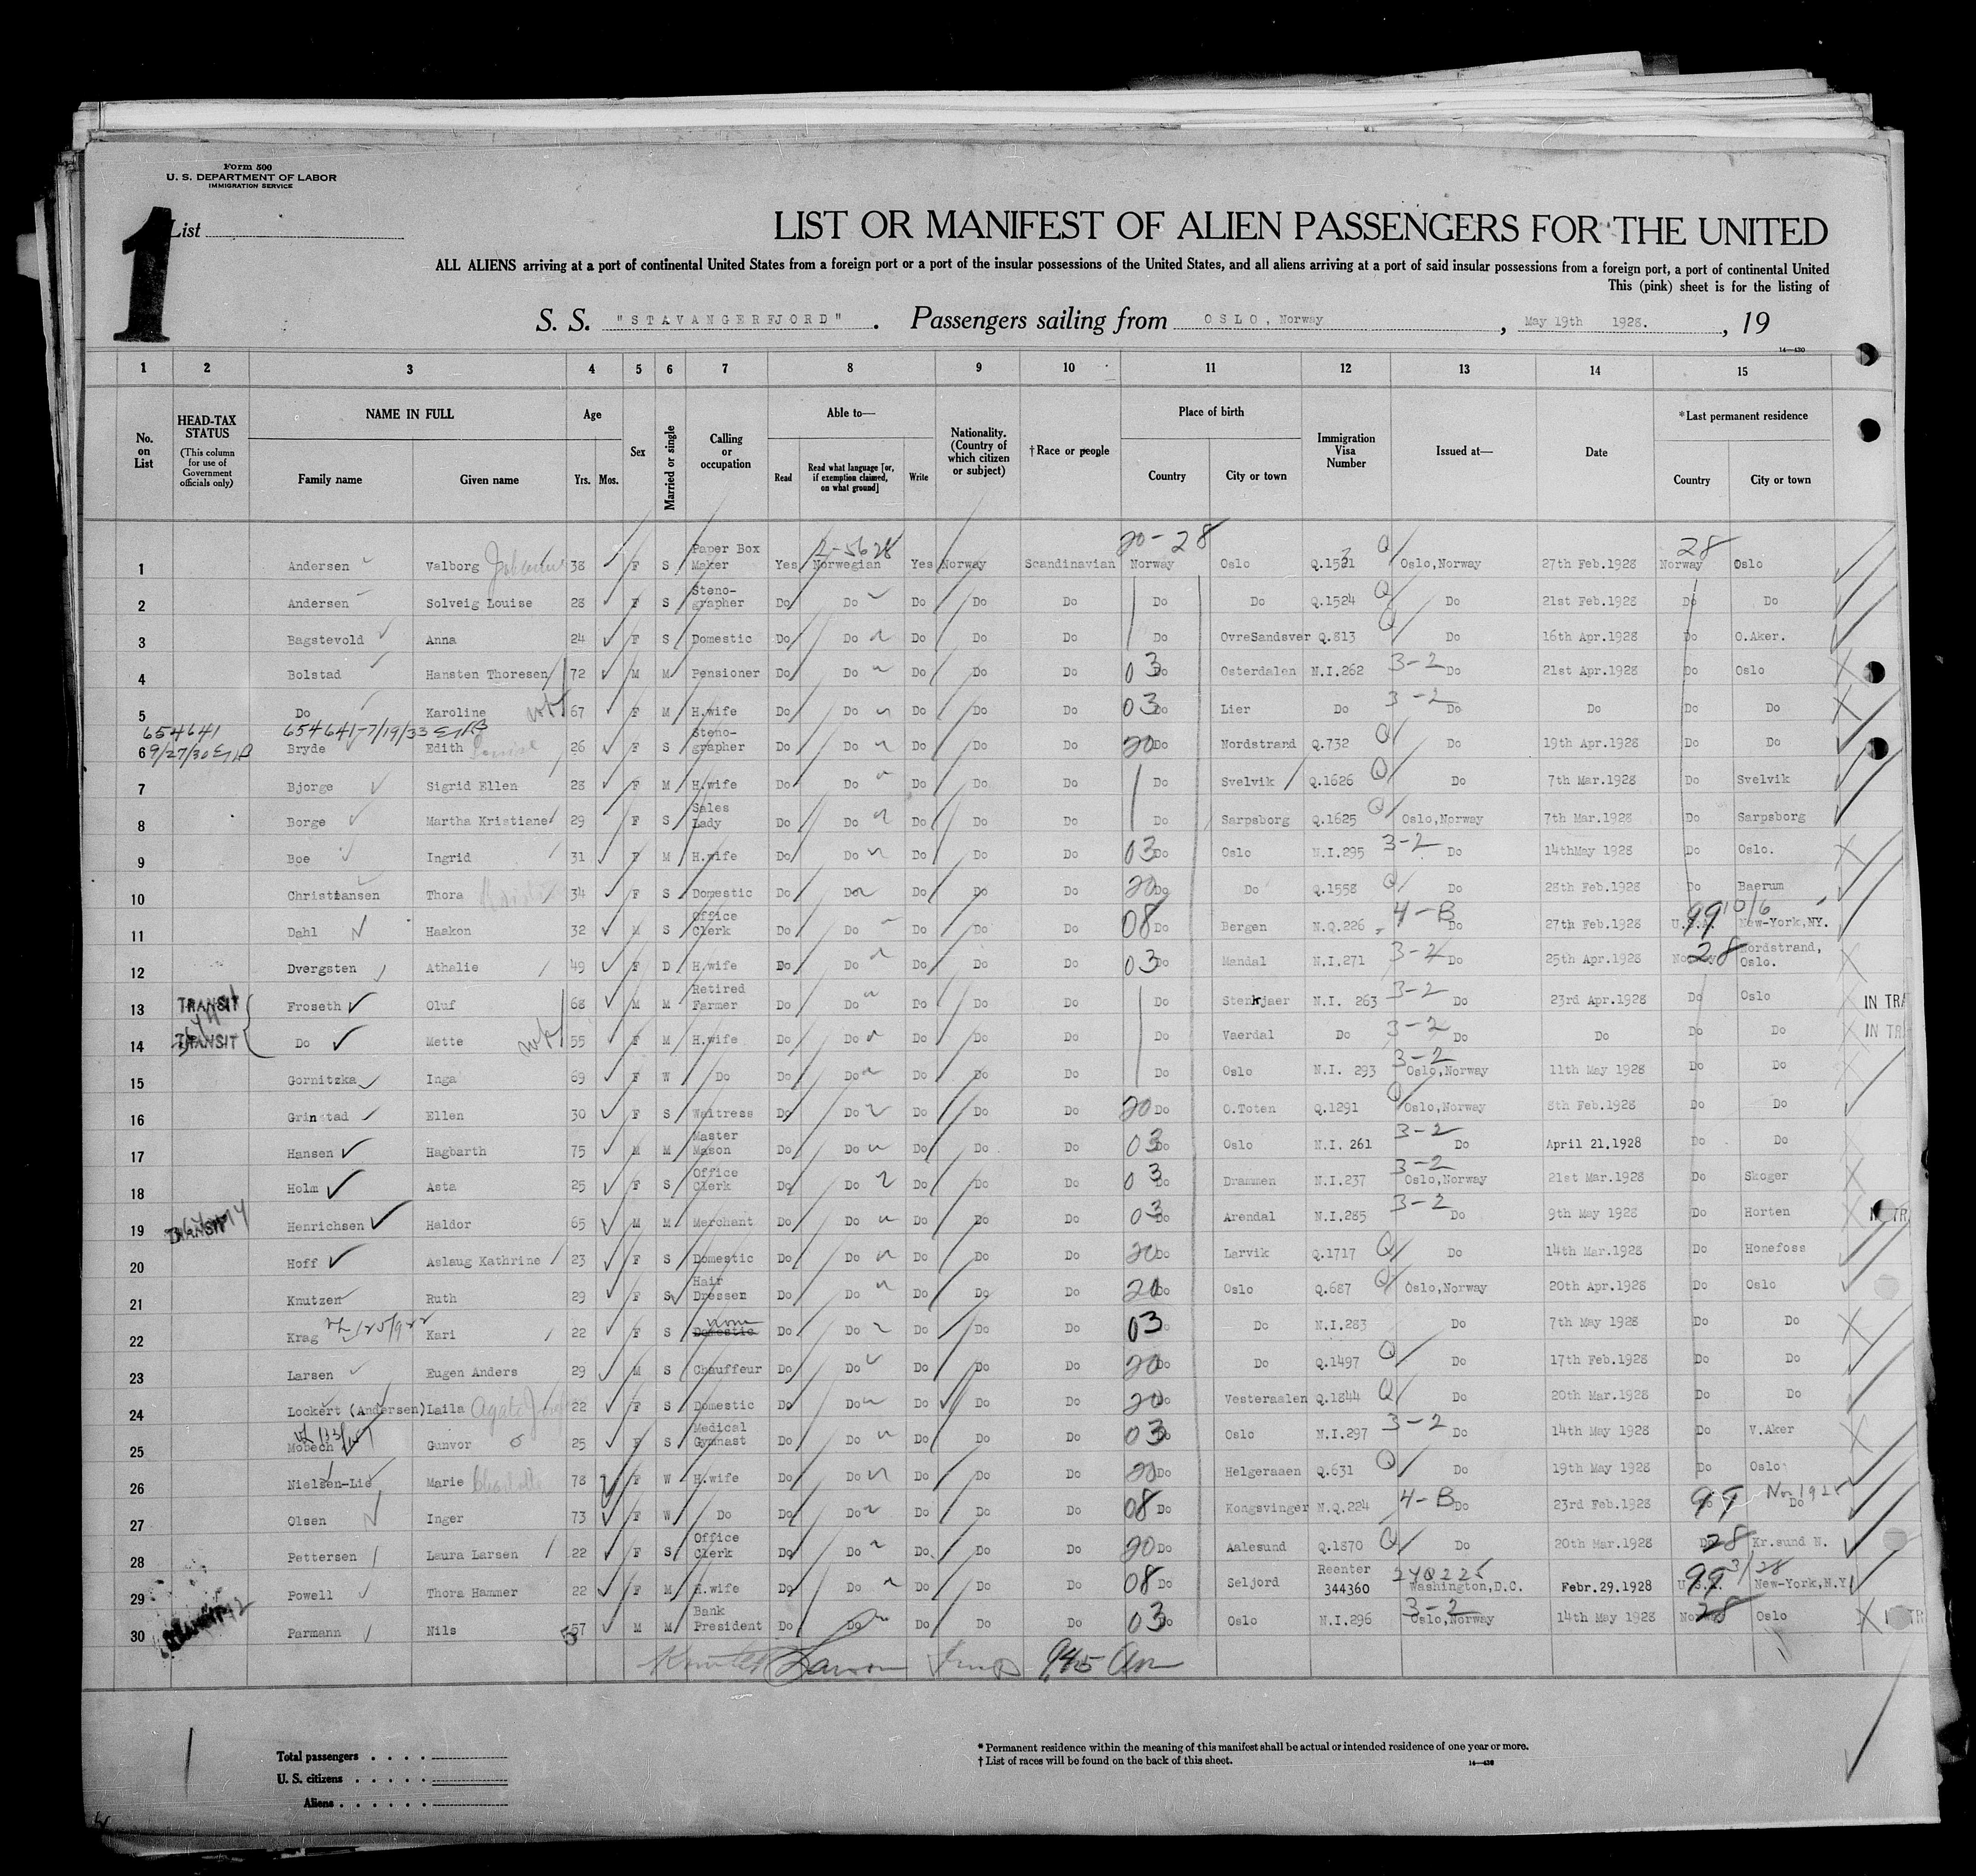 Form 500
U. S. DEPARTMENT OF LABOR
IMMIGRATION SERVICE
1
List
LIST OR MANIFEST OF ALIEN PASSENGERS FOR THE UNITED
ALL ALIENS arriving at a port of continental United States from a foreign port or a port of the insular possessions of the United States, and all aliens arriving at a port of said insular possessions from a foreign port, a port of continental United
This (pink) sheet is for the listing of
S. S. "STAVANGERFJORD". Passengers sailing from OSLO, Norway, May 19th 1928., 19
14—430
1 2 3 4 5 6 7 8 9 10 11 12 13 14 15
No. on List
HEAD-TAX STATUS (This column for use of Government officials only)
NAME IN FULL Family name Given name
Age Yrs. Mos.
Sex
Married or single
Calling or occupation
Able to— Read Read what language [or, if exemption claimed, on what ground] Write
Nationality. (Country of which citizen or subject)
† Race or people
Place of birth Country City or town
Immigration Visa Number
Issued at—
Date
* Last permanent residence Country City or town
20-28 28
1 Andersen Valborg 38 F S Paper Box Maker Yes Norwegian Yes Norway Scandinavian Norway Oslo Q.1521 Q Oslo,Norway 27th Feb.1928 Norway Oslo
2 Andersen Solveig Louise 28 F S Steno-grapher Do Do Do Do Do Do Do Q.1524 Q Do 21st Feb.1928 Do Do
3 Bagstevold Anna 24 F S Domestic Do Do Do Do Do Do OvreSandsver Q.813 Q Do 16th Apr.1928 Do O.Aker.
4 Bolstad Hansten Thoresen 72 M M Pensioner Do Do Do Do Do 03 Do Osterdalen N.I.262 3-2 Do 21st Apr.1928 Do Oslo
5 Do Karoline 67 F M H.wife Do Do Do Do Do 03 Do Lier Do 3-2 Do Do Do Do
654641 654641-7/19/33
6 9/27/30 Bryde Edith Louise 26 F S Steno-grapher Do Do Do Do Do 20 Do Nordstrand Q.732 Q Do 19th Apr.1928 Do Do
7 Bjorge Sigrid Ellen 28 F M H.wife Do Do Do Do Do Do Svelvik Q.1626 Q Do 7th Mar.1928 Do Svelvik
8 Borge Martha Kristiane 29 F S Sales Lady Do Do Do Do Do Do Sarpsborg Q.1625 Q Oslo,Norway 7th Mar.1928 Do Sarpsborg
9 Boe Ingrid 31 F M H.wife Do Do Do Do Do 03 Do Oslo N.I.295 3-2 Do 14thMay 1928 Do Oslo.
10 Christiansen Thora 34 F S Domestic Do Do Do Do Do 20 Do Do Q.1558 Q Do 28th Feb.1928 Do Baerum
11 Dahl Haakon 32 M S Office Clerk Do Do Do Do Do 08 Do Bergen N.Q.226 4-B Do 27th Feb.1928 U.S.A. 99 10/6 New-York,NY.
12 Dvergsten Athalie 49 F D H.wife Do Do Do Do Do 03 Do Mandal N.I.271 3-2 Do 25th Apr.1928 Norway 28 Nordstrand, Oslo.
13 TRANSIT Froseth Oluf 68 M M Retired Farmer Do Do Do Do Do Do Stenkjaer N.I. 263 3-2 Do 23rd Apr.1928 Do Oslo IN TRA
14 TRANSIT Do Mette 55 F M H.wife Do Do Do Do Do Do Vaerdal Do 3-2 Do Do Do Do IN TRA
15 Gornitzka Inga 69 F W Do Do Do Do Do Do Do Oslo N.I. 293 3-2 Oslo,Norway 11th May 1928 Do Do
16 Grinstad Ellen 30 F S Waitress Do Do Do Do Do 20 Do O.Toten Q.1291 Q Oslo,Norway 8th Feb.1928 Do Do
17 Hansen Hagbarth 75 M M Master Mason Do Do Do Do Do 03 Do Oslo N.I. 261 3-2 Do April 21.1928 Do Do
18 Holm Asta 25 F S Office Clerk Do Do Do Do Do 03 Do Drammen N.I.237 3-2 Oslo,Norway 21st Mar.1928 Do Skoger
19 TRANSIT Henrichsen Haldor 65 M M Merchant Do Do Do Do Do 03 Do Arendal N.I.285 3-2 Do 9th May 1928 Do Horten IN TR
20 Hoff Aslaug Kathrine 23 F S Domestic Do Do Do Do Do 20 Do Larvik Q.1717 Q Do 14th Mar.1928 Do Honefoss
21 Knutzen Ruth 29 F S Hair Dresser Do Do Do Do Do 20 Do Oslo Q.687 Q Oslo,Norway 20th Apr.1928 Do Oslo
22 Krag Kari 22 F S Domestic none Do Do Do Do Do 03 Do Do N.I.283 Do 7th May 1928 Do Do
23 Larsen Eugen Anders 29 M S Chauffeur Do Do Do Do Do 20 Do Do Q.1497 Q Do 17th Feb.1928 Do Do
24 Lockert (Andersen) Laila 22 F S Domestic Do Do Do Do Do 20 Do Vesteraalen Q.1844 Q Do 20th Mar.1928 Do Do
25 Mobech Gunvor 25 F S Medical Gymnast Do Do Do Do Do 03 Do Oslo N.I.297 3-2 Do 14th May 1928 Do V.Aker
26 Nielsen-Lie Marie Charlotte 78 F W H.wife Do Do Do Do Do 20 Do Helgeraaen Q.631 Q Do 19th May 1928 Do Oslo
27 Olsen Inger 73 F W Do Do Do Do Do Do 08 Do Kongsvinger N.Q.224 4-B Do 23rd Feb.1928 99 Do
28 Pettersen Laura Larsen 22 F S Office Clerk Do Do Do Do Do 20 Do Aalesund Q.1870 Q Do 20th Mar.1928 Do 28 Kr.sund N.
29 Powell Thora Hammer 22 F M H.wife Do Do Do Do Do 08 Do Seljord Reenter 344360 Washington,D.C. Febr.29.1928 U.S.A. 99 3/28 New-York,N.Y
30 Parmann Nils 57 M M Bank President Do Do Do Do Do 03 Do Oslo N.I.296 3-2 Oslo,Norway 14th May 1928 Norway 28 Oslo
Total passengers
U. S. citizens
Aliens
* Permanent residence within the meaning of this manifest shall be actual or intended residence of one year or more.
† List of races will be found on the back of this sheet.
14—430